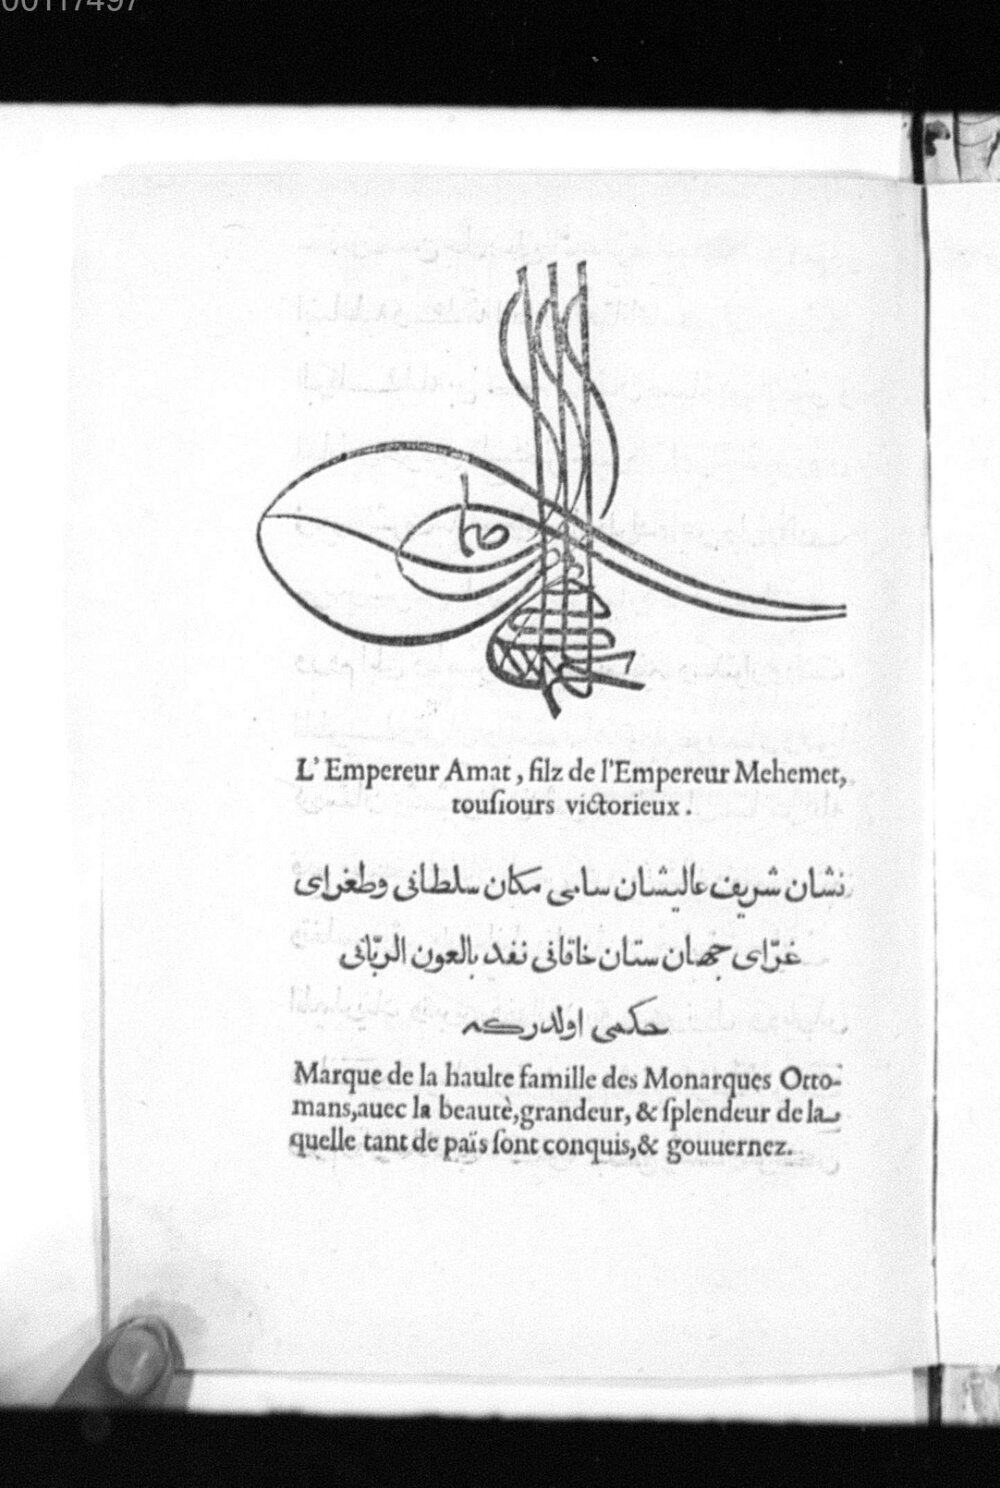 00117497
L' Empereur Amat, filz de l'Empereur Mehemet,
tousiours victorieux.
نشان شريف عاليشان سامى مكان سلطانى وطغراى
غرّاى جهان ستان خاقانى نفد بالعون الربّانى
حكمى اولدركه
Marque de la haulte famille des Monarques Otto-
mans,auec la beautè,grandeur, & splendeur de la
quelle tant de païs sont conquis,& gouuernez.